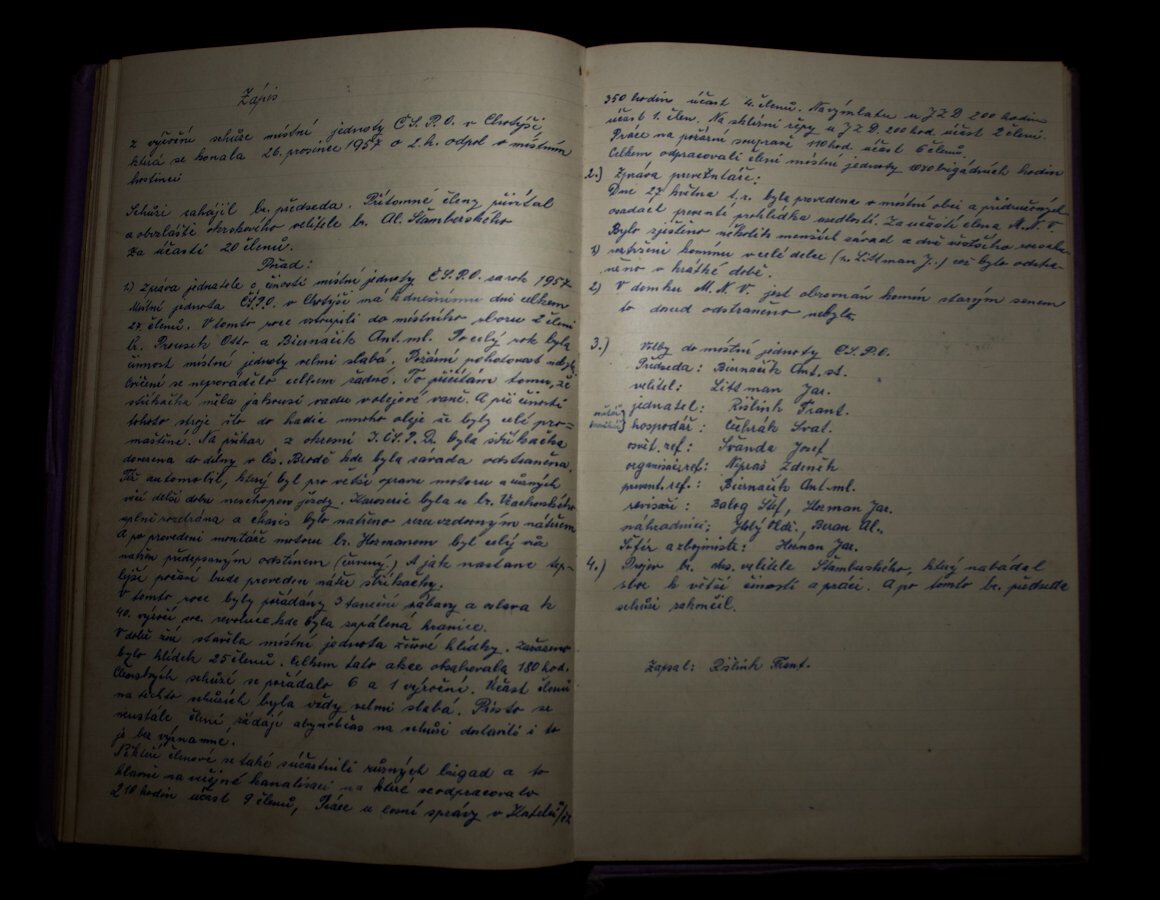 Zápis
z výroční schůze místní jednoty ČS.P.O. v Chotýši,
která se konala 26. prosince 1957 o 2.h. odpol v místním
hostinci
Schůzi zahájil br. předseda. Přítomné členy přivítal
a obzvláště okrskového velitele br. Al. Štamberského
Za účasti 20 členů.
Pořad:
1) Zpráva jednatele o činosti místní jednoty ČS.P.O. za rok 1957
Místní jednota ČS.P.O. v Chotýši má k dnešnímu dni celkem
27. členů. V tomto roce vstoupili do místního sboru 2 členi
br. Otto a Biernačik Ant. ml. Po celý rok byla
činnost místní jednoty velmi slabá. Požární pohotovost
cvičení se neporádělo celkem žádné. To přičítám tomu, že
stříkačka měla jakousi vadu v olejové vaně. A při činosti
tohoto stroje šlo do hadic mnoho oleje že byly celé pro=
maštěné. Na příkaz z okresní I.ČS.P.O. byla stříkačka
dovezena do dílny v Čes. Brodě kde byla závada odstraněna.
Též automobil, který byl pro větší opravu motoru a různých
věcí delší dobu neschopen jízdy. Karoserie byla u br.
úplně rozebrána a chasis bylo natřeno rzuvzdorným nátěrem
A po provedení montáže motoru br. Hermanem byl celý vůz
natřen předepsaným odstínem (červený.) A jak nastane tep-
lejší počasí bude proveden nátěr stříkačky.
V tomto roce byly pořádány 3 taneční zábavy a oslava k
40. výročí soc. revoluce kde byla zapálená hranice.
V době žní stavěla místní jednota žňové hlídky. Zařazeno
bylo hlídek 25 členů. Celkem tato akce obsahovala 180 hod.
Členských schůzí se pořádalo 6 a 1 výroční. Účast členů
na těchto schůzích byla vždy velmi slabá. Přesto se
neustále členi žádají aby občas na schůzi dostavili i to
je bez významné.
Někteří členové se také súčastnili různých brigad a to
hlavně na veřejné kanalisaci na které se odpracovalo
210 hodin účast 9 členů, Práce u lesní správy v
350 hodin účast 4. členů. Na výmlatu u JZD 200 hodin
účast 1. člen. Na sklizni řepy u J.Z.D. 200 hod účast 2 členi.
Práce na požární soupravě 110 hod. účast 6 členů.
Celkem odpracovali členi místní jednoty brigádnických hodin
2.) Zpráva preventáře:
Dne 27 května t.r. byla provedena v místní obci a přidružených
osadách preventi prohlídka usedlostí. Za účasti člena M.N.V
Bylo zjištěno několik menších závad a dvě většího rozsahu
1) roztržení komínu v celé délce (u. Littman J.,) což bylo odstra-
něno v krátké době.
2) V domku M.N.V. jest obrovnán komín starým senem
to dosud odstraneno nebylo.
3.) Volby do místní jednoty ČS.P.O.
Předseda: Biernačik Ant. st.
velitel: Littman Jar.
jednatel: Rištink Frant.
hospodář: Čihrák Sval.
osvět. ref: Švanda Josef
organisač.ref: Nepraš Zdeněk
prevent. ref.: Biernačik Ant. ml.
revisoři: Balog Štef, Herman Jar.
náhradníci; Holý Old., Beran Al.,
Šofér a zbrojmistr: Heřman Jar.
4.) Projev br. okrs. velitele Štamberského, který nabádal
sbor k větší činosti a práci. A po tomto br. předseda
schůzi zakončil.
Zapsal: Rištink Frant.